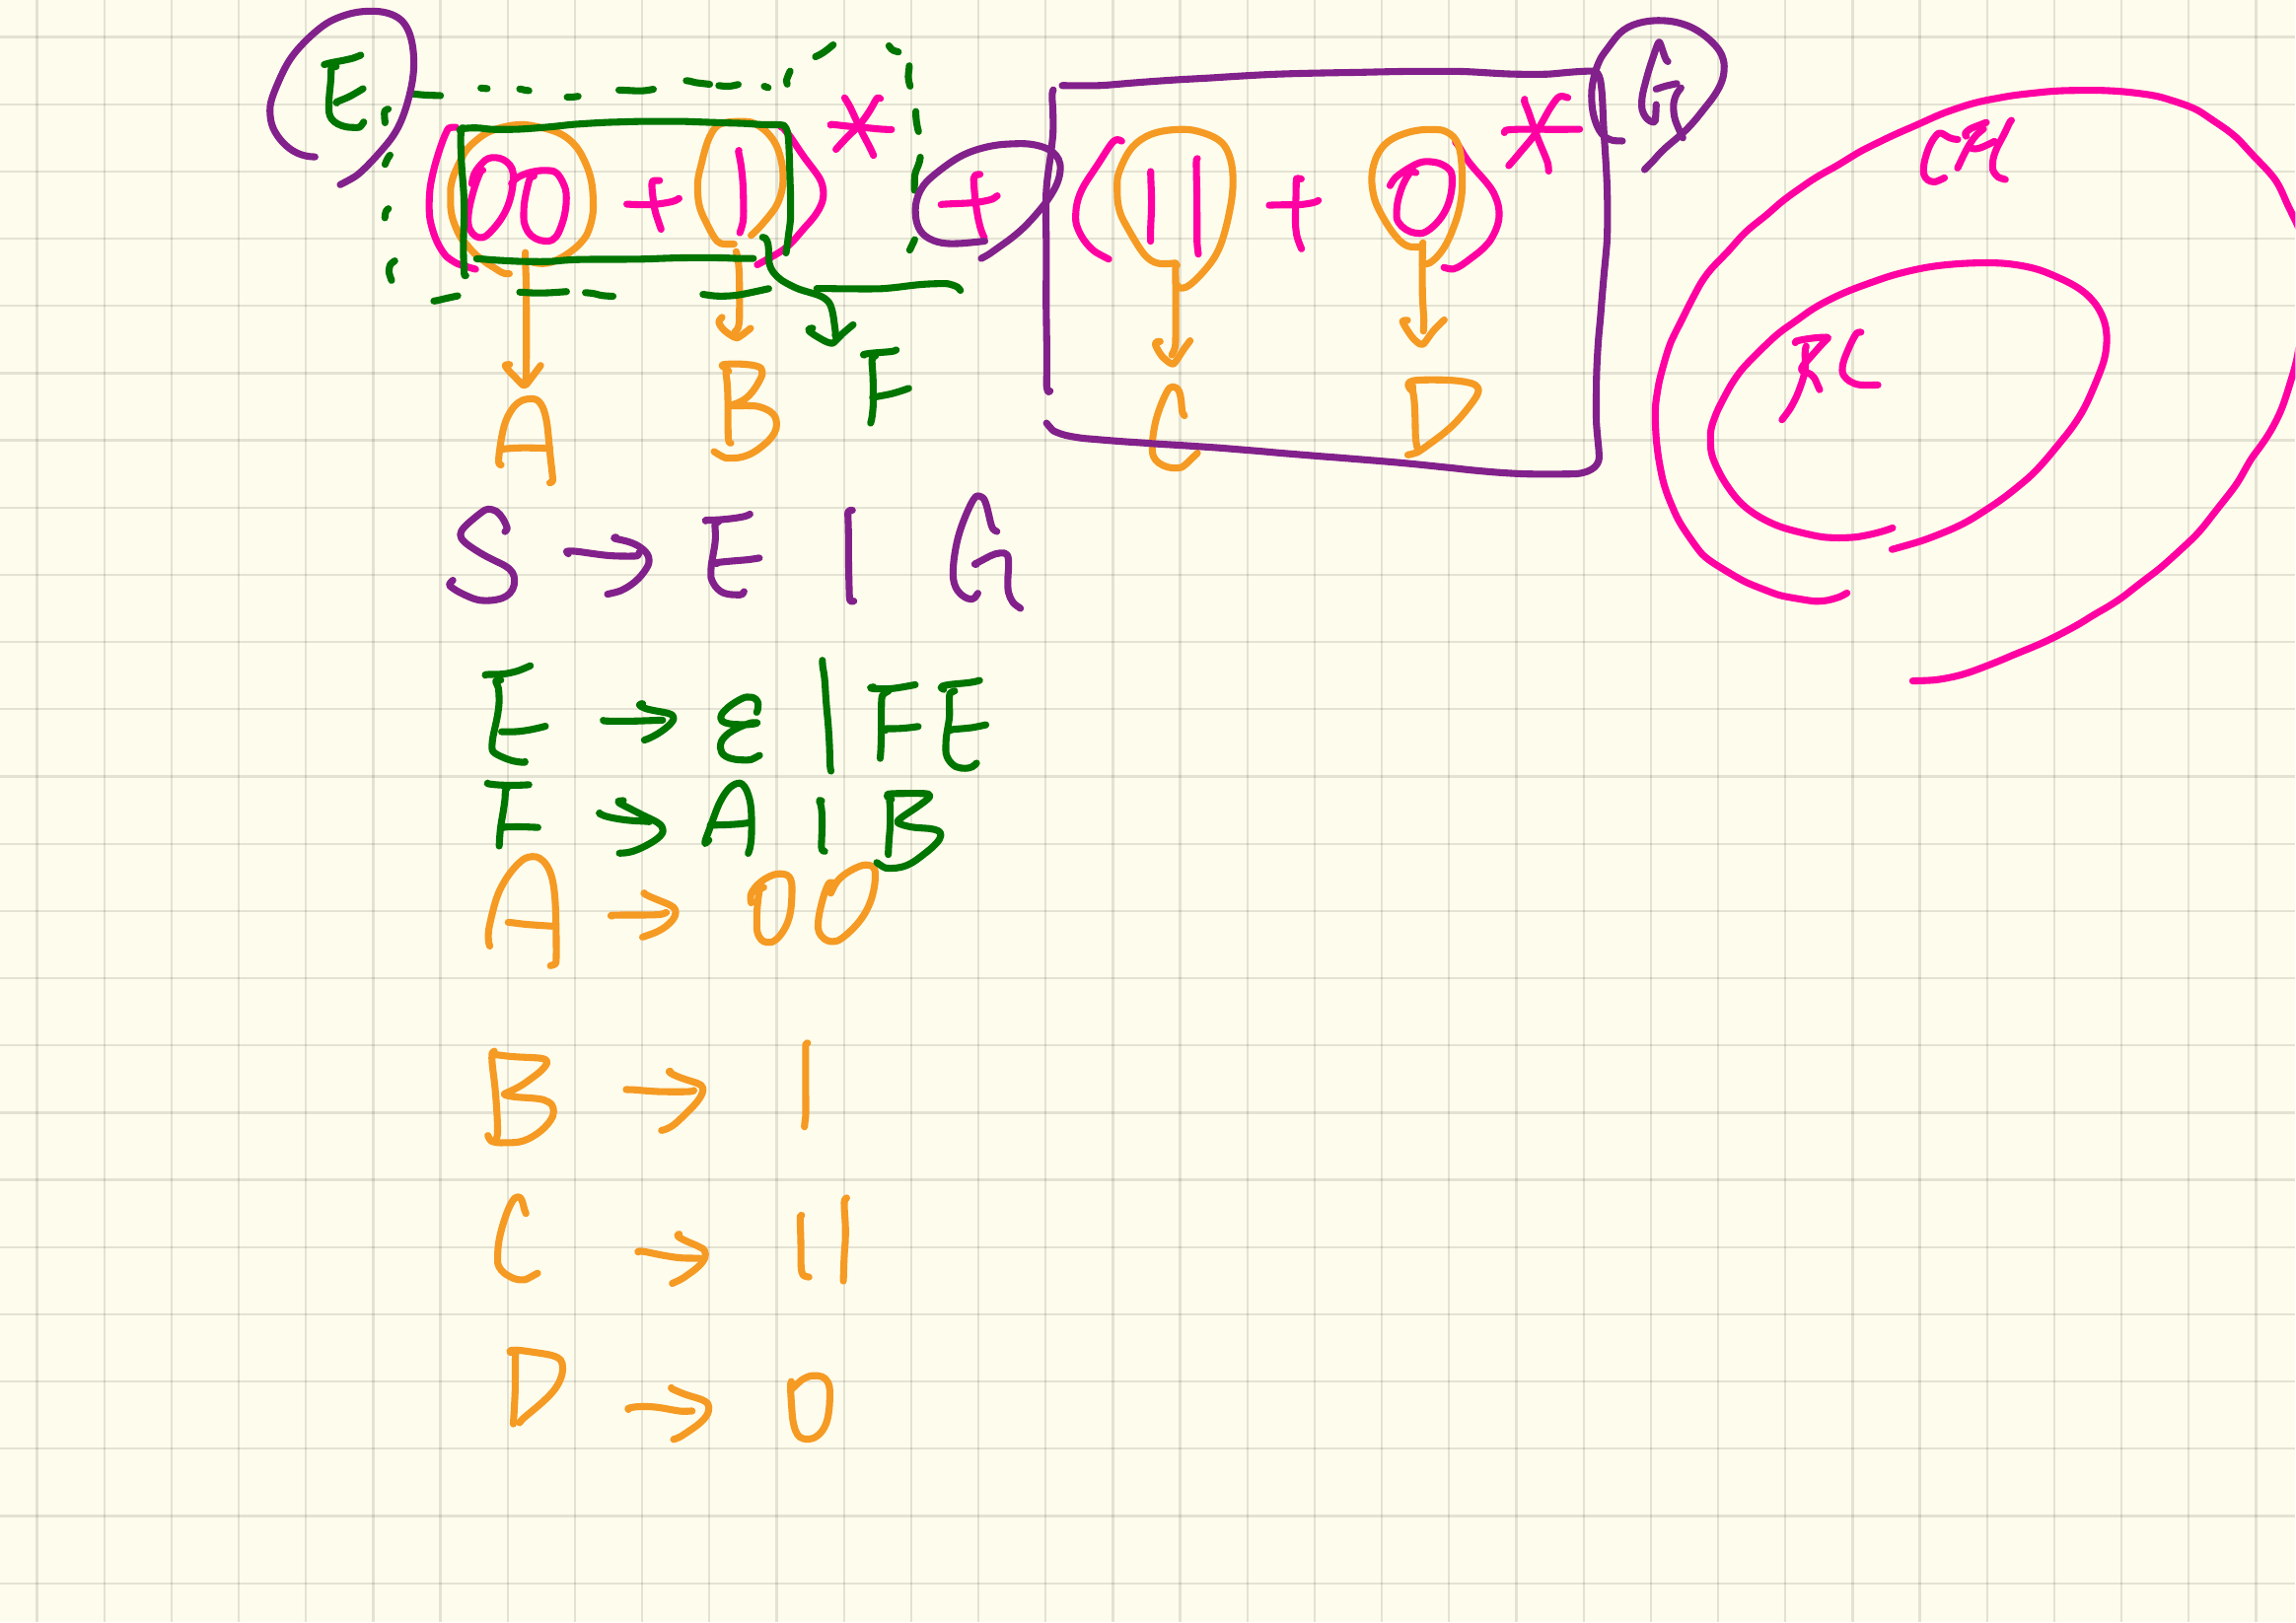 E (00 + 1)* + (11 + 0)* G
RL
F
A B C D
S → E | G
E → ε | FE
F → A | B
A → 00
B → 1
C → 11
D → 0